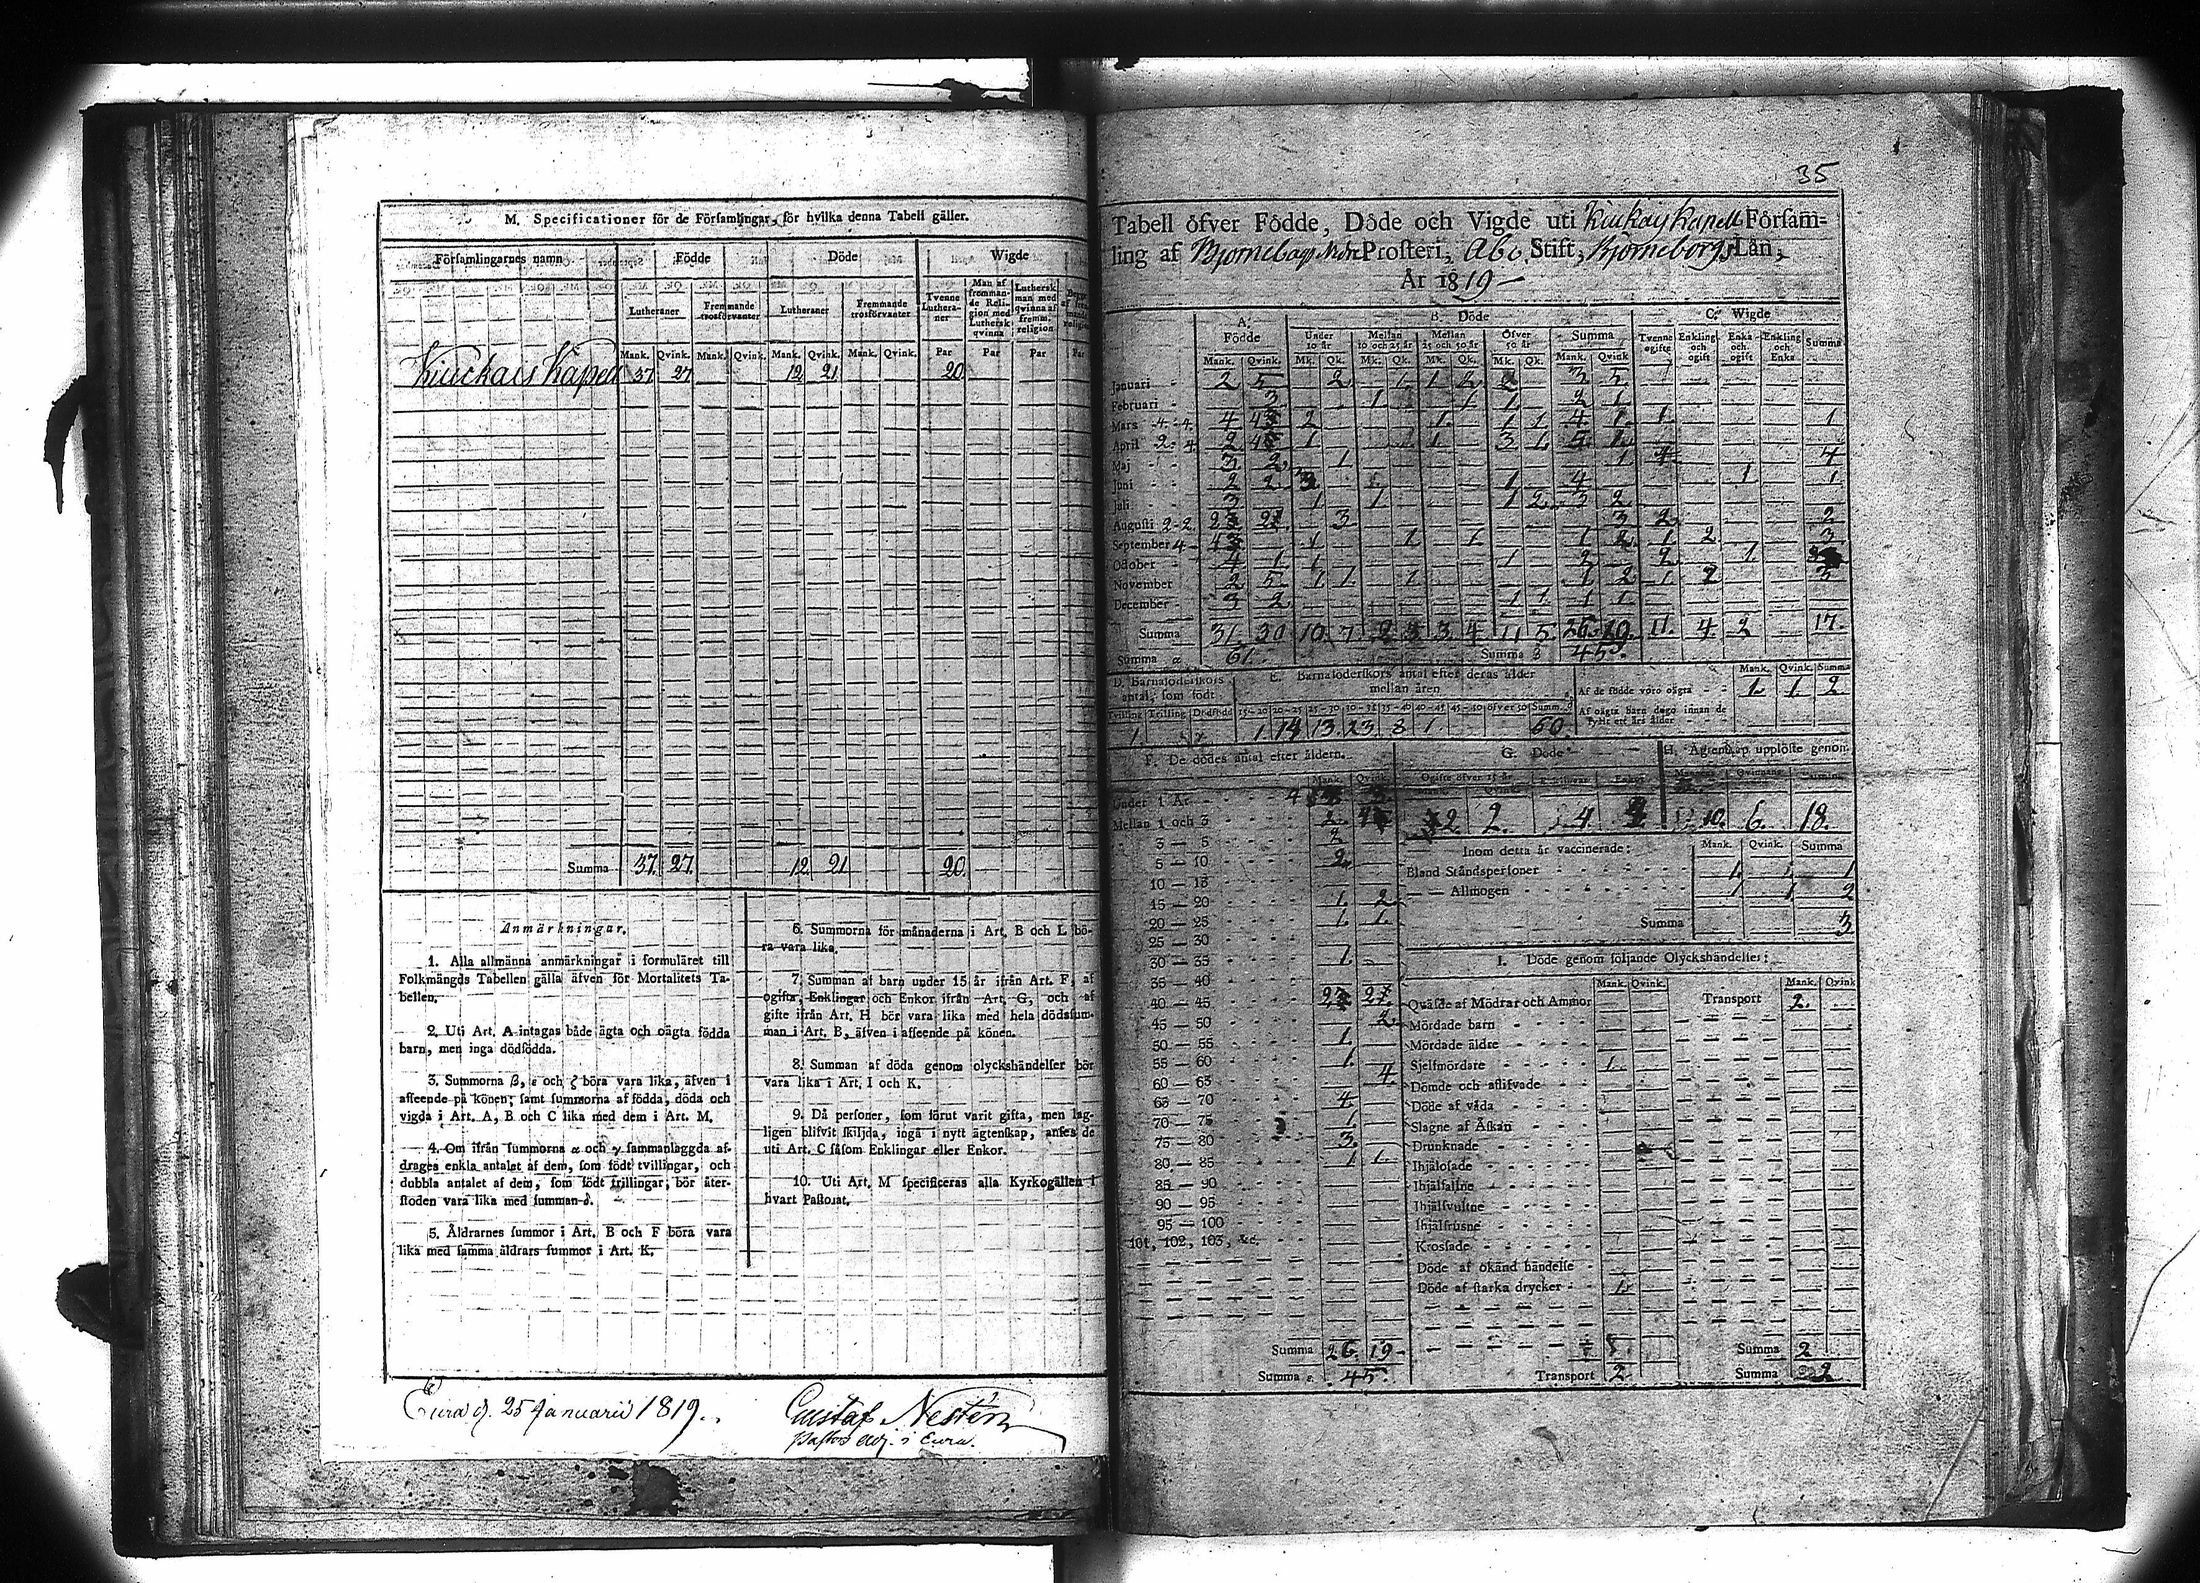 M. Specificationer för de Församlingar, för hvilka denna Tabell gäller.
Församlingarnes namn Födde Döde Wigde
Lutheraner Fremmande trosförvanter Lutheraner Fremmande trosförvanter Tvenne Lutheraner Man af fremmande Religion med Luthersk qvinna Luthersk man med qvinna af fremm. religion
Mank. Qvink. Mank. Qvink. Mank. Qvink. Mank. Qvink. Par Par Par Par
Kiuckais Kapell 37 27 12 21 20
Summa 37. 27. 12 21 20.
Anmärkningar.
1. Alla allmänna anmärkningar i formuläret till
Folkmängds Tabellen gälla äfven för Mortalitets Ta-
bellen.
2. Uti Art. A intagas både ägta och oägta födda
barn, men inga dödfödda.
3. Summorna β, ε och ζ böra vara lika, äfven i
affeende på könen; samt summorna af födda, döda och
vigda i Art. A, B och C lika med dem i Art. M.
4. Om ifrån summorna α och γ sammanlaggda af-
drages enkla antalet af dem, som födt tvillingar, och
dubbla antalet af dem, som födt trillingar, bör åter-
stoden vara lika med summan δ.
5. Åldrarnes summor i Art. B och F böra vara
lika med samma åldrars summor i Art. K.
6. Summorna för månaderna i Art. B och L bö-
ra vara lika.
7. Summan af barn under 15 år ifrån Art. F, af
ogifta, Enklingar och Enkor ifrån Art. G, och af
gifte ifrån Art. H bör vara lika med hela dödssum-
man i Art. B, äfven i affeende på könen.
8. Summan af döda genom olyckshändelser bör
vara lika i Art. I och K.
9. Då personer, som förut varit gifta, men lag-
ligen blifvit skiljda, ingå i nytt ägtenskap, anses de
uti Art. C såsom Enklingar eller Enkor.
10. Uti Art. M specificeras alla Kyrkogällen i
hvart Pastorat.
Eura d. 25 Januarii 1819.
Gustaf Nestén
Pastor adj. i Eura.
35
Tabell öfver Födde, Döde och Vigde uti Kiukais Kapell Försam=
ling af Björneborgs Nedre Prosteri, Åbo Stift, Björneborgs Län,
År 1819
A. Födde B. Döde C. Wigde
Under 10 år Mellan 10 och 25 år Mellan 25 och 50 år Öfver 50 år Summa Tvenne ogifte Enkling och ogift Enka och ogift Enkling och Enka Summa
Mank. Qvink. Mk. Qk. Mk. Qk. Mk. Qk. Mk. Qk. Mank. Qvink
Januari 2 5 2 1 1 2 2 3 5
Februari 3 1 1 1 2 1
Mars 4 2 1 1 1 4 1 1 1
April 2 1 1 1 3 1 5
Maj 3 2 1 1 4 4
Juni 2 2 3 1 1 4 1 1
Juli 3 1 1 1 2 3 2
Augusti 3 3 2 2
September 1 1 1 1 2 1 2 3
October 4 1 1 1 2 2 1
November 2 5 1 1 1 1 2 1 2 3
December 3 2 1 1 1 1
Summa 31. 30 10. 7 2 3 3. 4 11 5. 26. 19. 11. 4. 2 17.
Summa α 61. Summa β 45.
D. Barnaföderskors antal, som födt
E. Barnaföderskors antal efter deras ålder mellan åren
Tvilling Trilling Dödfödd 15-20 20-25 25-30 30-35 35-40 40-45 45-50 öfver 50 Summ. δ
1. 1 14 13 23 8 1 60
Mank. Qvink. Summa
Af de födde voro oägta 1. 1. 2
Af oägta barn dogo innan de fyllt ett års ålder
F. De dödes antal efter åldern.
Mank. Qvink.
Under 1 År
Mellan 1 och 3 2
3 — 5 2
5 — 10 2
10 — 15
15 — 20 1. 2
20 — 25 1. 1.
25 — 30
30 — 35 1.
35 — 40
40 — 45
45 — 50 2
50 — 55 1.
55 — 60 1.
60 — 65 4.
65 — 70 4.
70 — 75 1.
75 — 80 3.
80 — 85 1 1.
85 — 90
90 — 95
95 — 100
101, 102, 103, &c.
Summa 26. 19
Summa ε 45.
G. Döde
Ogifte öfver 15 år Enklingar Enkor
2. 2. 4
H. Ägtenskap upplöste genom
10. 6. 18.
Inom detta år vaccinerade: Mank. Qvink. Summa
Bland Ståndspersoner 1. 1
— — Allmogen 1 1 2
Summa 3
I. Döde genom följande Olyckshändelser:
Mank. Qvink. Mank. Qvink
Qväfde af Mödrar och Ammor Transport 2.
Mördade barn
Mördade äldre
Sjelfmördare 1.
Dömde och aflifvade
Döde af våda
Slagne af Åskan
Drunknade
Ihjälosade
Ihjälfallne
Ihjälsvultne
Ihjälfrusne
Krossade
Döde af okänd händelse
Döde af starka drycker 1.
Summa 2
Transport 2 Summa 2